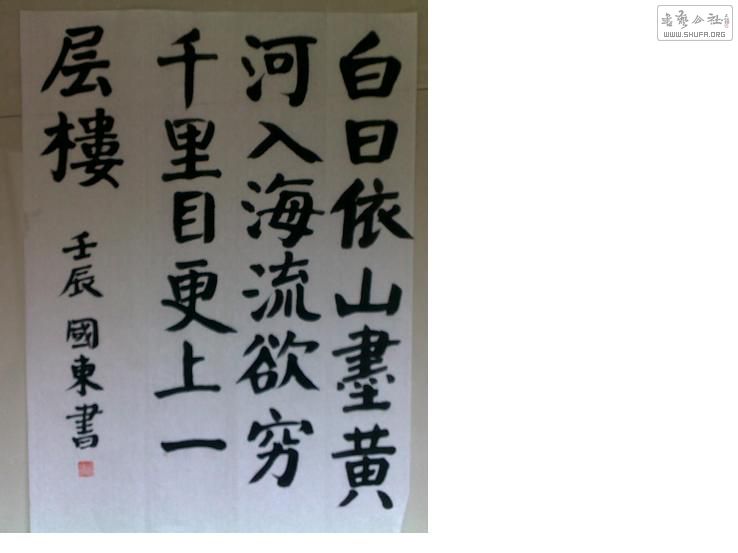 白日依山盡黄
河入海流欲穷
千里目更上一
层樓
壬辰 國東書
書藝公社
WWW.SHUFA.ORG